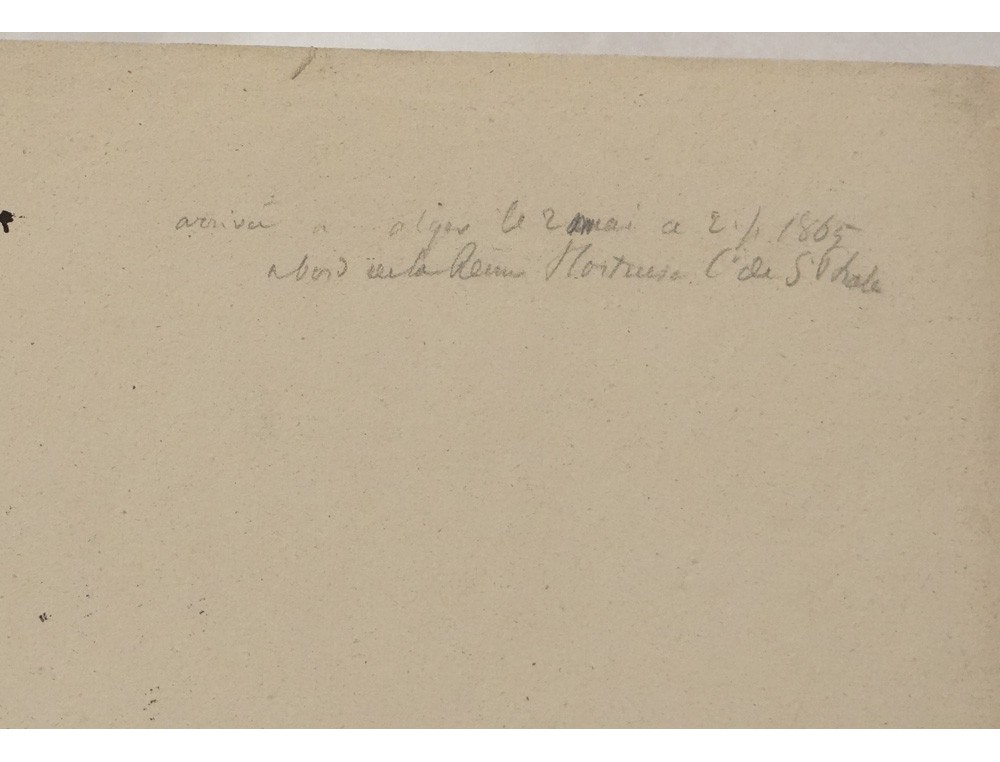 arrivé a alger le 2 mai a 2 h 1865
abord de la Reine Hortense Cte de St Phale